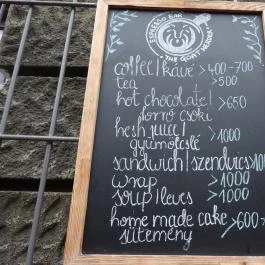 ESPRESSO BAR
THE GOAT HERDER
coffee | kávé >400-700
tea >500
hot chocolate |
forró csoki >650
fresh juice |
gyümölcslé >1000
sandwich | szendvics >10
wrap >1000
soup | leves >1000
home made cake >600
sütemény